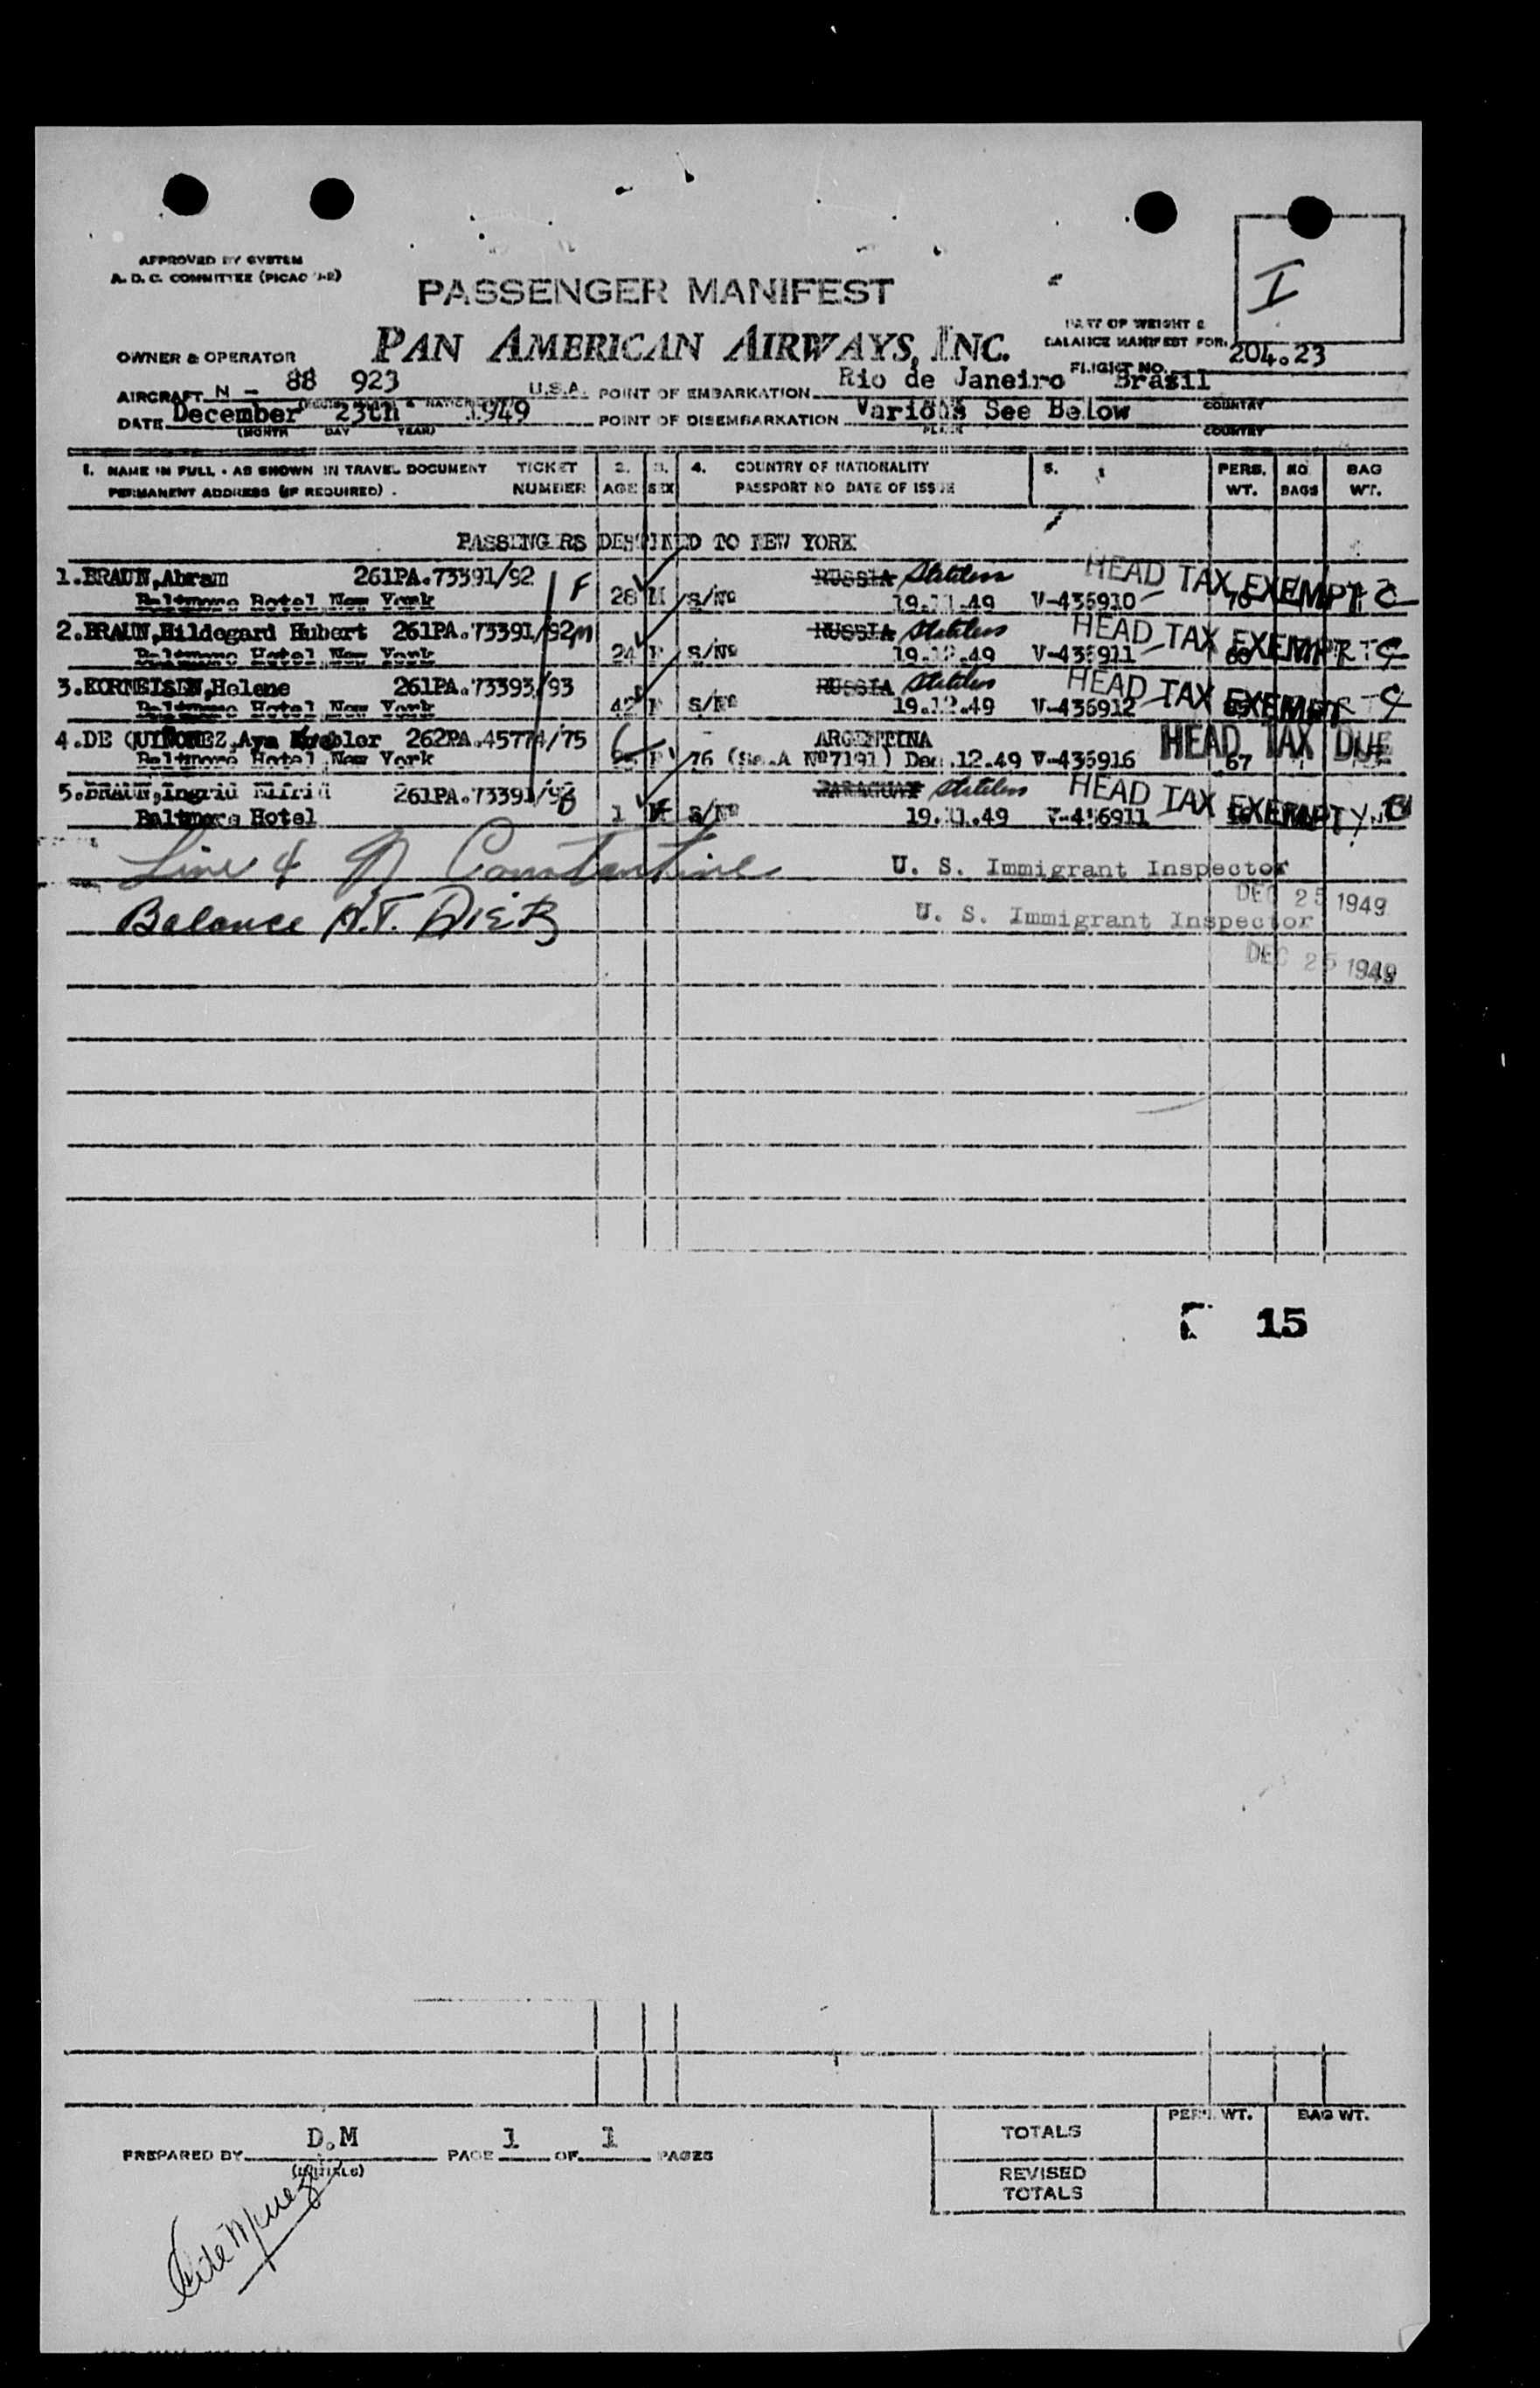 APPROVED BY SYSTEM
A. D. C. COMMITTEE (PICAO
I
PASSENGER MANIFEST
PART OF WEIGHT &
BALANCE MANIFEST FOR
OWNER & OPERATOR PAN AMERICAN AIRWAYS, INC.
FLIGHT NO. 204.23
AIRCRAFT N - 88 923 U.S.A. POINT OF EMBARKATION Rio de Janeiro Brasil
COUNTRY
DATE December 23th 1949 POINT OF DISEMBARKATION Various See Below
(MONTH DAY YEAR) PLACE COUNTRY
1. NAME IN FULL - AS SHOWN IN TRAVEL DOCUMENT TICKET 2. 3. 4. COUNTRY OF NATIONALITY 5. PERS. NO. BAG
PERMANENT ADDRESS (IF REQUIRED). NUMBER AGE SEX PASSPORT NO DATE OF ISSUE WT. BAGS WT.
PASSENGERS DESTINED TO NEW YORK
1.BRAUN,Abram 261PA.73391/92 F RUSSIA Stateless HEAD TAX EXEMPT
Baltmore Hotel New York 28 M S/Nº 19.11.49 V-436910 70
2.BRAUN,Hildegard Hubert 261PA.73391/92 m RUSSIA Stateless HEAD TAX EXEMPT
Baltmore Hotel New York 24 F S/Nº 19.12.49 V-436911
3.KORNEISEN,Helene 261PA.73393/93 RUSSIA Stateless HEAD TAX EXEMPT
Baltmore Hotel New York 42 F S/Nº 19.12.49 V-436912
4.DE QUINONEZ,Aya 262PA.45774/75 ARGENTINA HEAD TAX DUE
Baltmore Hotel New York F 76 (Se.A Nº7191) Dec.12.49 V-436916 67
5.BRAUN,Ingrid Elfrid 261PA.73391/92 PARAGUAY Stateless HEAD TAX EXEMPT
Baltmore Hotel 1 S/Nº 19.11.49 V-436911
Line 4 Constantine U. S. Immigrant Inspector
DEC 25 1949
Balance A.T. DIETZ U. S. Immigrant Inspector
DEC 25 1949
15
TOTALS PERS. WT. BAG WT.
PREPARED BY D.M PAGE 1 OF 1 PAGES
(INITIALS)
REVISED
TOTALS